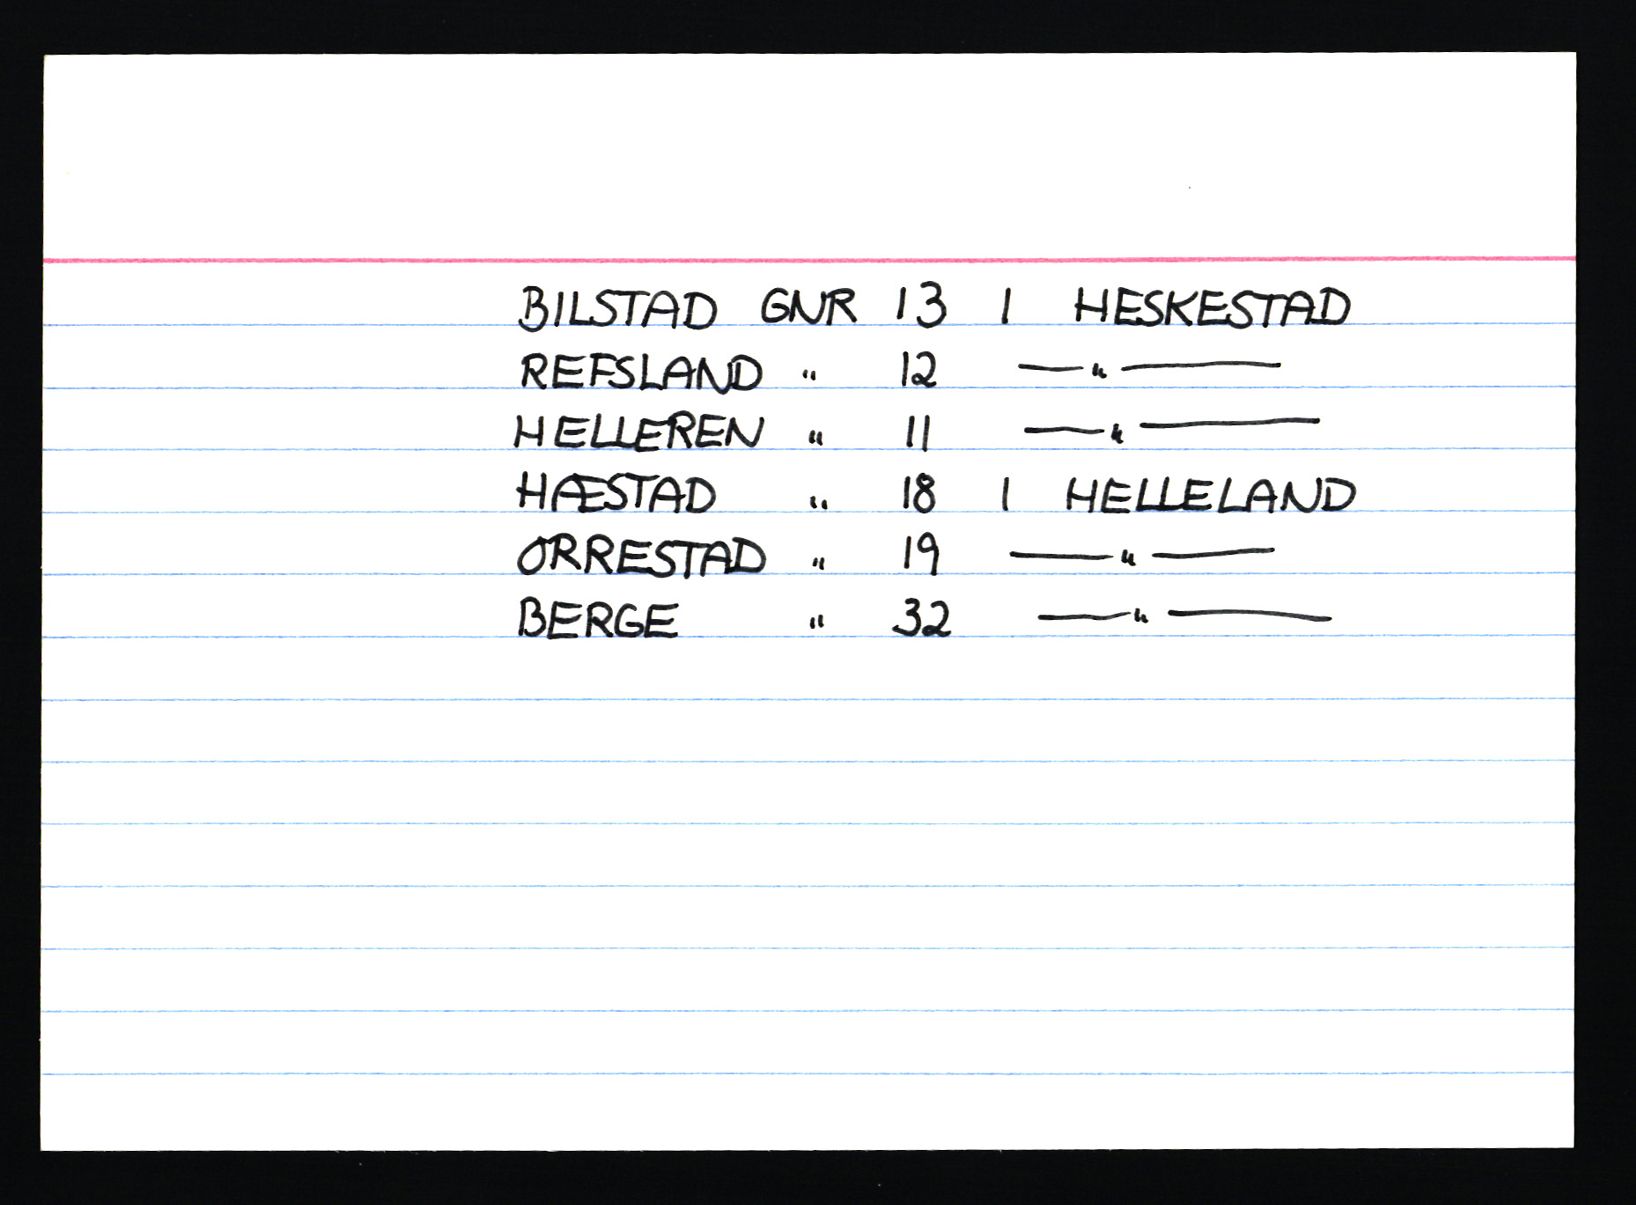 BILSTAD GNR 13 I HESKESTAD
REFSLAND " 12 — " —
HELLEREN " 11 — " —
HÆSTAD " 18 I HELLELAND
ORRESTAD " 19 — " —
BERGE " 32 — " —